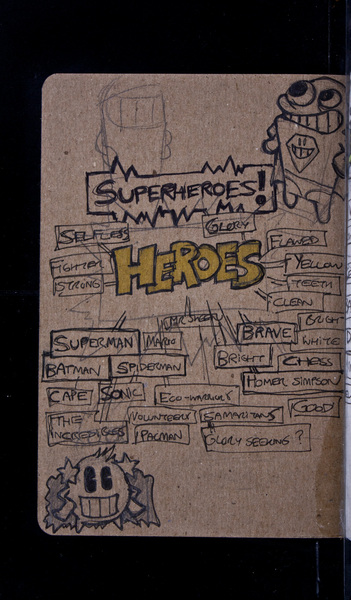 SUPERHEROES!
SELFLESS
GLORY
FLAWED
HEROES
FIGHTER
YELLOW
STRONG
TEETH
CLEAN
MR SHEEN
BRIGHT
WHITE
BRAVE
SUPERMAN
MARIO
BRIGHT
CHESS
BATMAN
SPIDERMAN
HOMER SIMPSON
CAPE
SONIC
ECO-WARRIORS
GOOD
THE
INCREDIBLES
VOLUNTEERS
SAMARITANS
PACMAN
GLORY SEEKING?